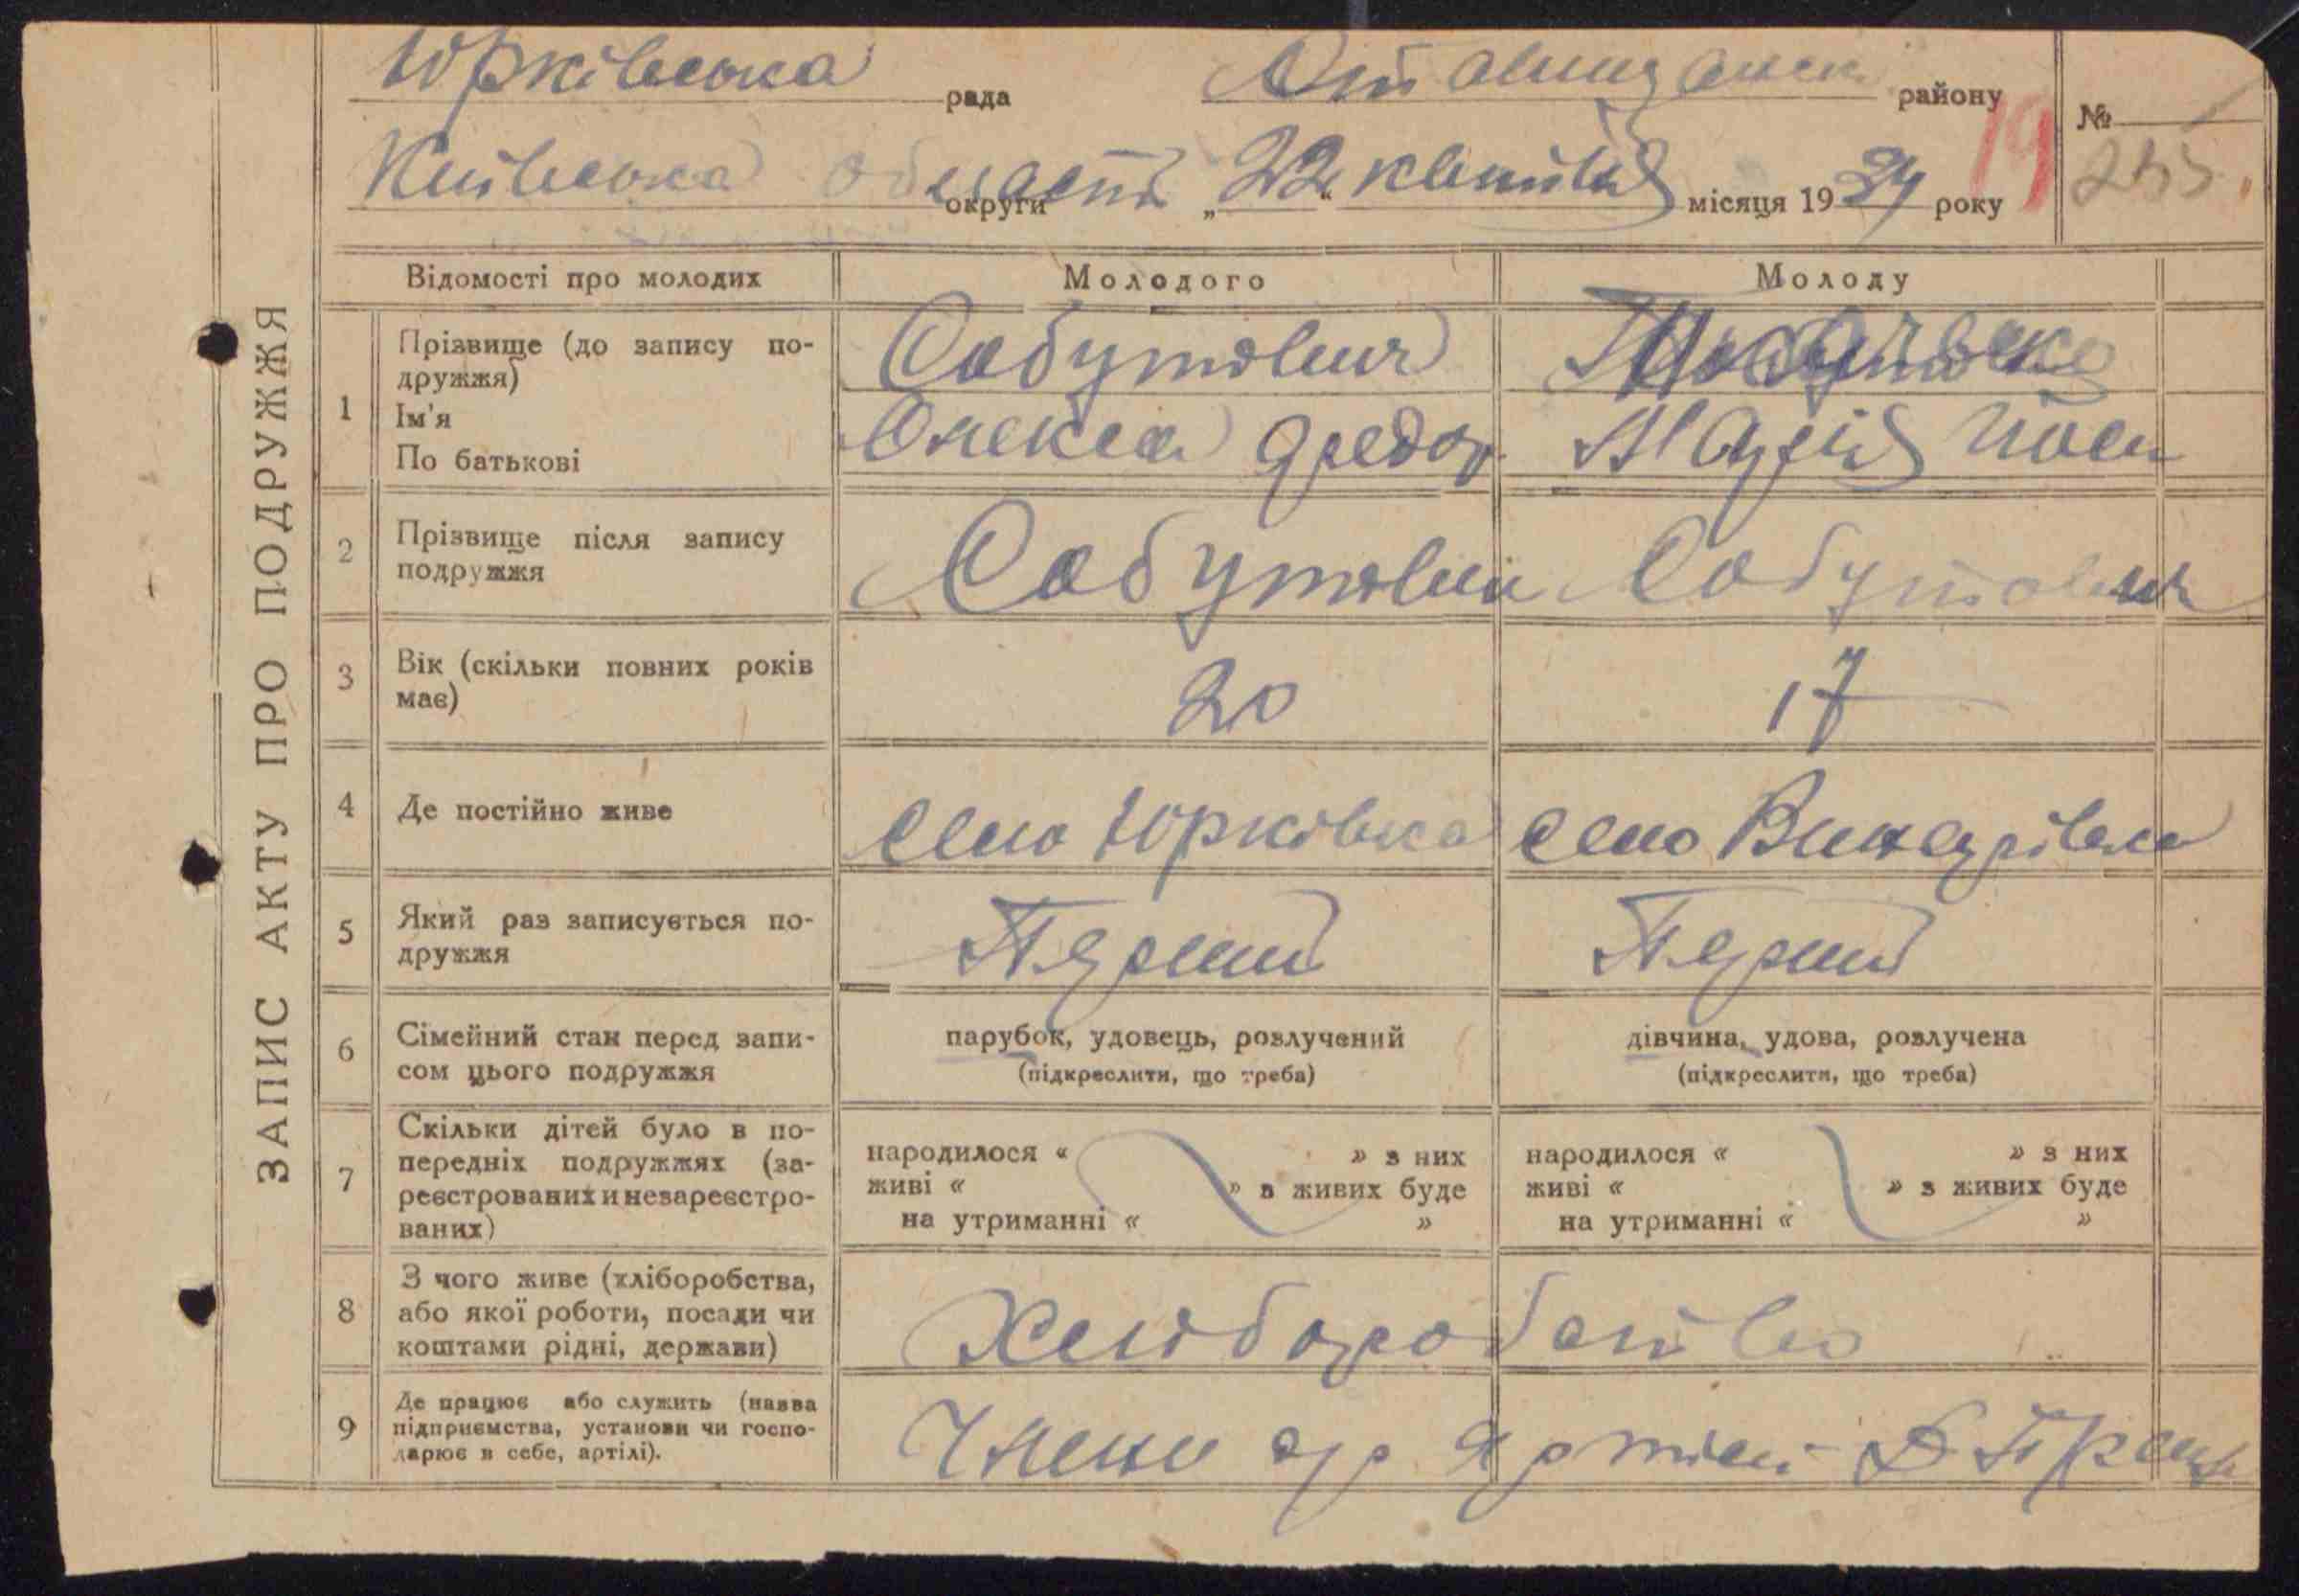 Юрківська рада Ставищанськ. району
№
Київська область округи „22“ квітня місяця 1934 року
19
255
ЗАПИС АКТУ ПРО ПОДРУЖЖЯ
Відомості про молодих Молодого Молоду
1 Прізвище (до запису по-
дружжя)
Собутович
Ім'я
По батькові
Олекса Федор Марія Йоси
2 Прізвище після запису
подружжя
Собутович Собутович
3 Вік (скільки повних років
має)
20 17
4 Де постійно живе село Юрківка село Винарівка
5 Який раз записується по-
дружжя
Перший Перший
6 Сімейний стан перед запи-
сом цього подружжя
парубок, удовець, розлучений дівчина, удова, розлучена
(підкреслити, що треба) (підкреслити, що треба)
7 Скільки дітей було в по-
передніх подружжях (за-
реєстрованих и незареєстро-
ваних)
народилося « » з них
живі « » з живих буде
на утриманні « »
народилося « » з них
живі « » з живих буде
на утриманні « »
8 З чого живе (хліборобства,
або якої роботи, посади чи
коштами рідні, держави)
Хліборобство
9 Де працює або служить (назва
підприємства, установи чи госпо-
дарює в себе, артілі).
Члени